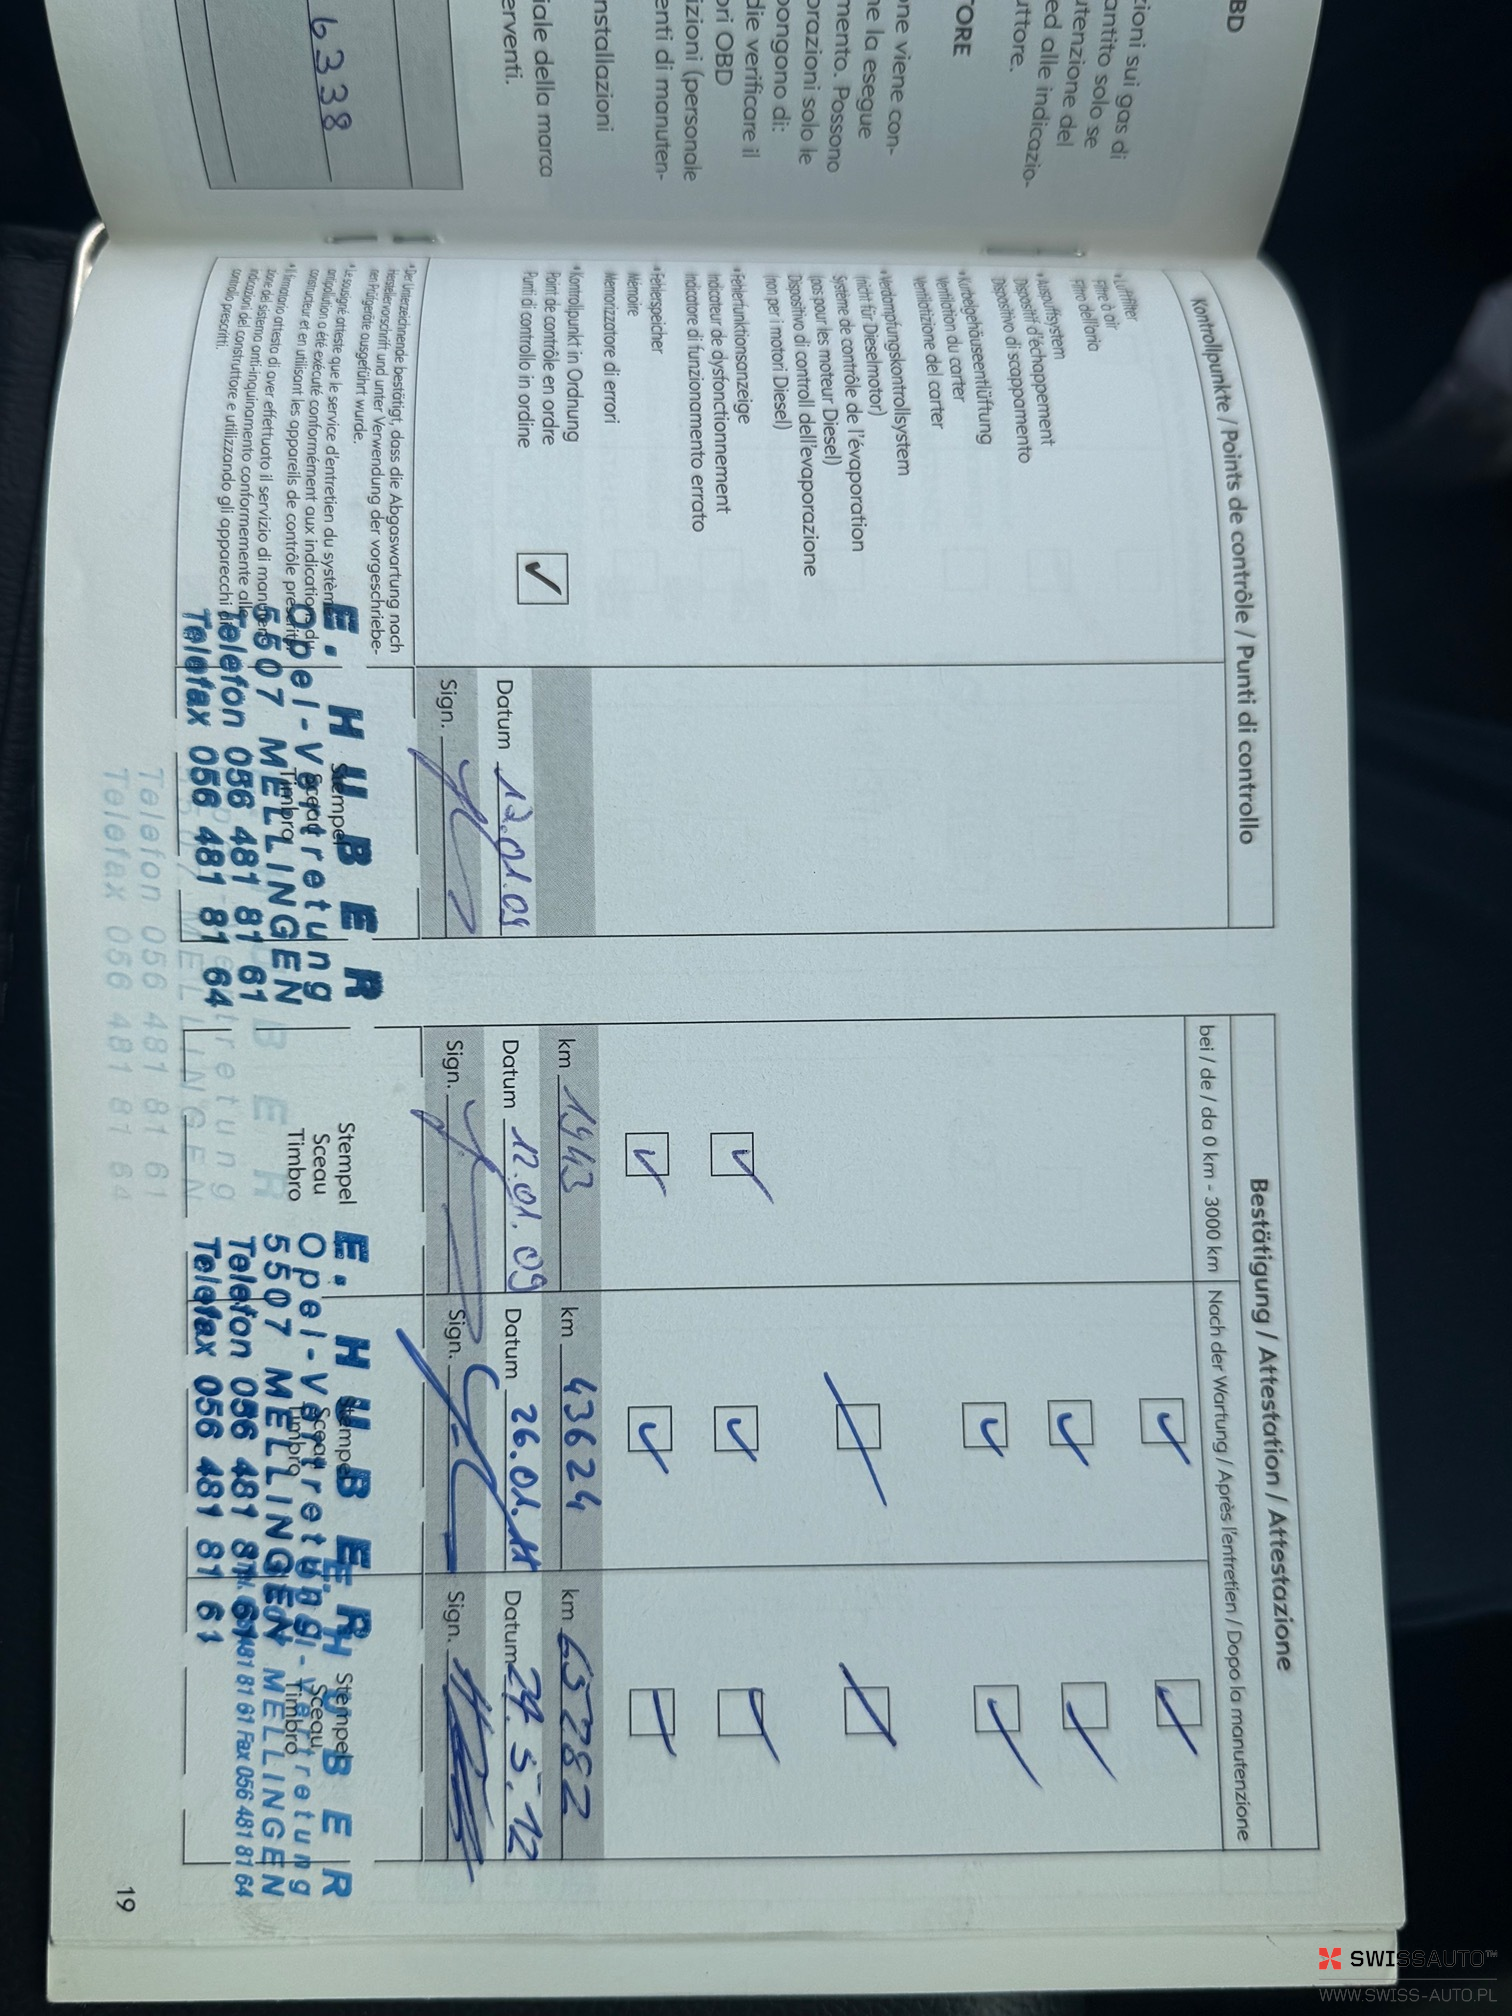 BD
zioni sui gas di
antito solo se
utenzione del
ed alle indicazio-
uttore.
TORE
one viene con-
ne la esegue
mento. Possono
orazioni solo le
pongono di:
die verificare il
ori OBD
izioni (personale
enti di manuten-
nstallazioni
iale della marca
erventi.
6338
Kontrollpunkte / Points de contrôle / Punti di controllo
• Luftfilter
Filtre à air
Filtro dell'aria
• Auspuffsystem
Dispositif d'échappement
Dispositivo di scappamento
• Kurbelgehäuseentlüftung
Ventilation du carter
Ventilizione del carter
• Verdampfungskontrollsystem
(nicht für Dieselmotor)
Système de contrôle de l'évaporation
(pas pour les moteur Diesel)
Dispositivo di controll dell'evaporazione
(non per i motori Diesel)
• Fehlerfunktionsanzeige
Indicateur de dysfonctionnement
Indicatore di funzionamento errato
• Fehlerspeicher
Mémoire
Memorizzatore di errori
• Kontrollpunkt in Ordnung
Point de contrôle en ordre
Punti di controllo in ordine
Datum 12.01.09
Sign.
• Der Unterzeichnende bestätigt, dass die Abgaswartung nach
Herstellervorschrift und unter Verwendung der vorgeschriebe-
nen Prüfgeräte ausgeführt wurde.
• Le soussigné atteste que le service d'entretien du système
antipollution a été exécuté conformément aux indications du
constructeur et en utilisant les appareils de contrôle prescrits.
• Il firmatario attesta di aver effettuato il servizio di manuten-
zione del sistema anti-inquinamento conformemente alle
indicazioni del construttore e utilizzando gli apparecchi di
controllo prescritti.
Stempel
Sceau
Timbro
E. HUBER
Opel-Vertretung
5507 MELLINGEN
Telefon 056 481 81 61
Telefax 056 481 81 64
Telefon 056 481 81 61
Telefax 056 481 81 64
Bestätigung / Attestation / Attestazione
bei / de / da 0 km - 3000 km
Nach der Wartung / Après l'entretien / Dopo la manutenzione
km 1943
Datum 12.01.09
Sign.
Stempel
Sceau
Timbro
km 43624
Datum 26.01.11
Sign.
Stempel
Sceau
Timbro
E. HUBER
Opel-Vertretung
5507 MELLINGEN
Telefon 056 481 81 61
Telefax 056 481 81 61
km 65782
Datum 24.5.12
Sign.
Stempel
Sceau
Timbro
HUBER
Vertretung
MELLINGEN
481 81 61 Fax 056 481 81 64
19
SWISSAUTO™
WWW.SWISS-AUTO.PL